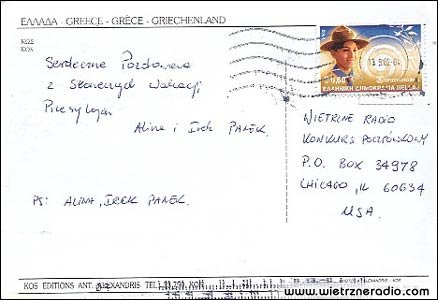 ΕΛΛΑΔΑ - GREECE - GRÈCE - GRIECHENLAND
ΚΩΣ
KOS
Serdeczne Pozdrowienia
z Słonecznych Wakacji
Przesyłają
Alina i Irek PAŁEK.
PS: ALINA, IREK PANEK.
ΕΛΛΗΝΙΚΗ ΔΗΜΟΚΡΑΤΙΑ HELLAS
WIETRZNE RADIO
KONKURS POCZTÓWKOWY
P.O. BOX 34978
CHICAGO, IL 60634
USA.
KOS EDITIONS ANT. ALEXANDRIS TEL.
www.wietrzneradio.com